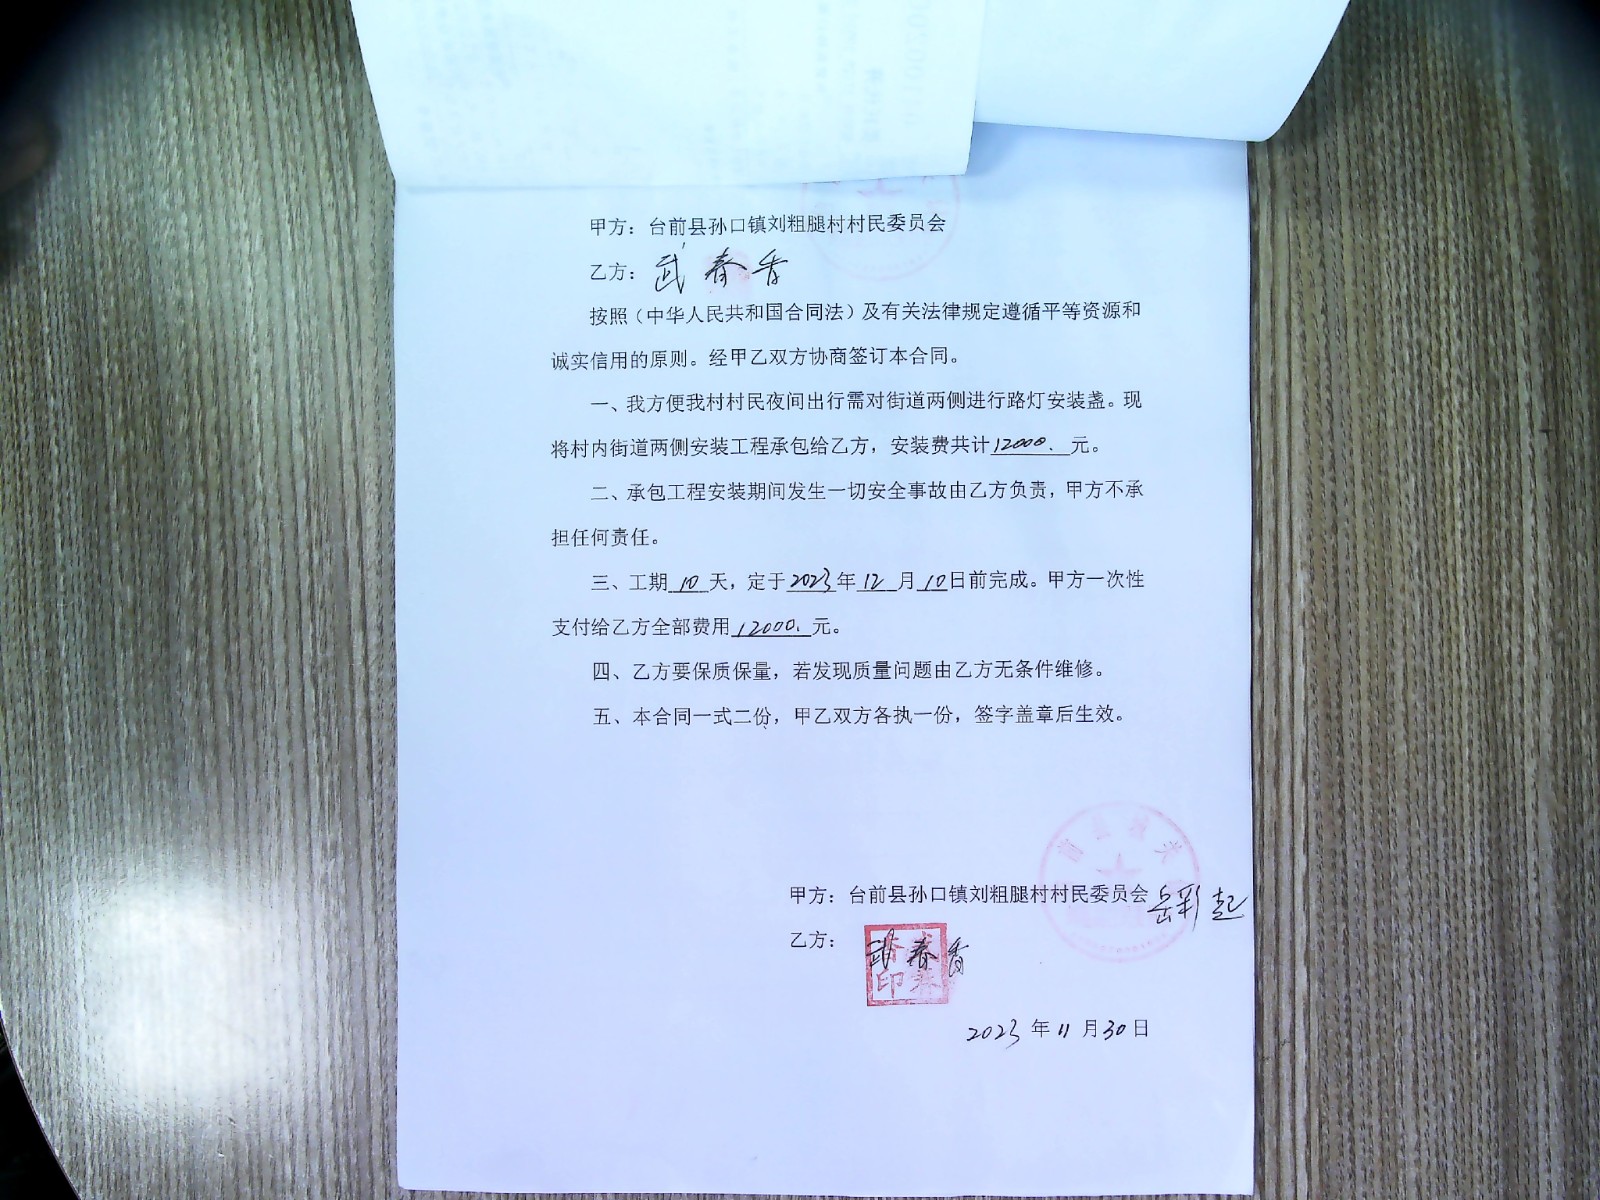 甲方：台前县孙口镇刘粗腿村村民委员会
乙方：武春香
按照（中华人民共和国合同法）及有关法律规定遵循平等资源和
诚实信用的原则。经甲乙双方协商签订本合同。
一、我方便我村村民夜间出行需对街道两侧进行路灯安装盏。现
将村内街道两侧安装工程承包给乙方，安装费共计12000.元。
二、承包工程安装期间发生一切安全事故由乙方负责，甲方不承
担任何责任。
三、工期10天，定于2023年12月10日前完成。甲方一次性
支付给乙方全部费用12000.元。
四、乙方要保质保量，若发现质量问题由乙方无条件维修。
五、本合同一式二份，甲乙双方各执一份，签字盖章后生效。
甲方：台前县孙口镇刘粗腿村村民委员会 岳彩起
乙方：武春香
2023年11月30日